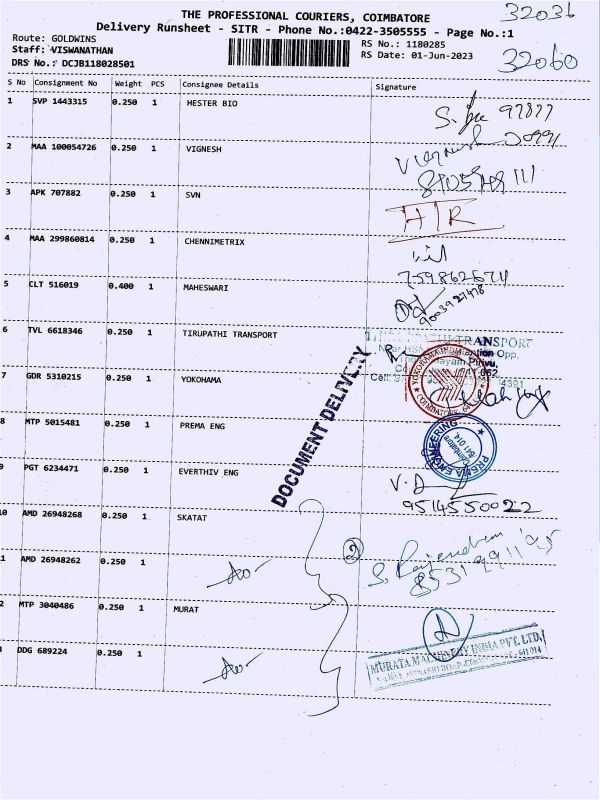 THE PROFESSIONAL COURIERS, COIMBATORE
32036
Delivery Runsheet - SITR - Phone No.:0422-3505555 - Page No.:1
Route: GOLDWINS
RS No.: 1180285
Staff: VISWANATHAN
RS Date: 01-Jun-2023
32060
DRS No.: DCJB118028501
S No Consignment No Weight PCS Consignee Details Signature
1 SVP 1443315 0.250 1 HESTER BIO
2 MAA 100054726 0.250 1 VIGNESH
Vignesh
3 APK 707882 0.250 1 SVN
H/R
4 MAA 299860814 0.250 1 CHENNIMETRIX
5 CLT 516019 0.400 1 MAHESWARI
6 TVL 6618346 0.250 1 TIRUPATHI TRANSPORT
TRANSPORT
7 GDR 5310215 0.250 1 YOKOHAMA
DOCUMENT DELIVERY
8 MTP 5015481 0.250 1 PREMA ENG
PREMA ENGINEERING
641 014
9 PGT 6234471 0.250 1 EVERTHIV ENG
V.D
9514550022
10 AMD 26948268 0.250 1 SKATAT
2
S. Rajendran
AMD 26948262 0.250 1
MTP 3040486 0.250 1 MURAT
MURATA MACHINERY INDIA PVT. LTD.
DDG 689224 0.250 1